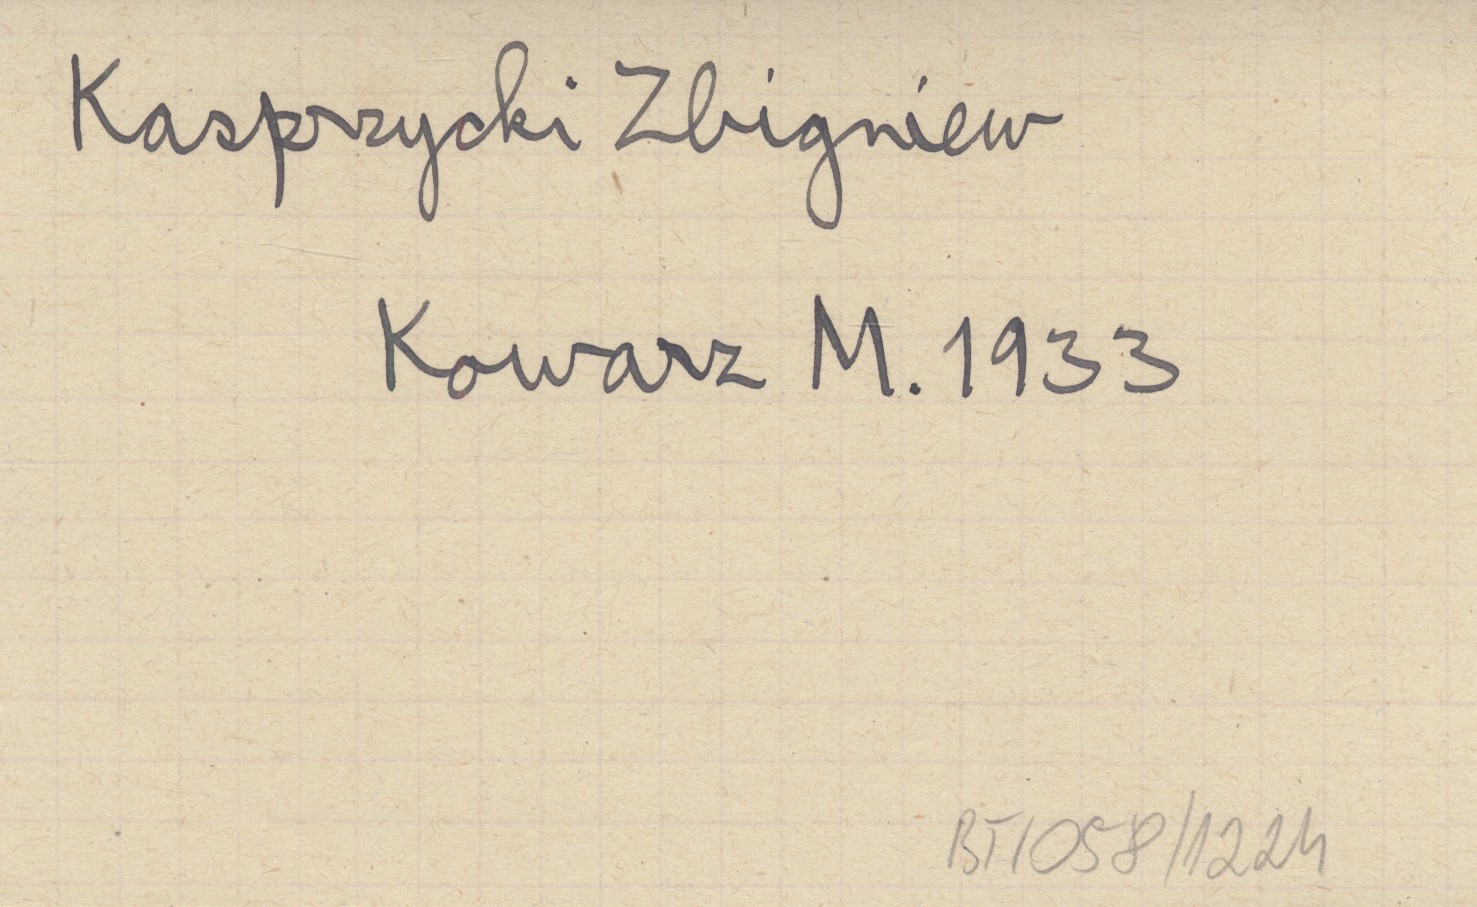 Kasprzycki Zbigniew
Kowarz M. 1933
BT/058/1224